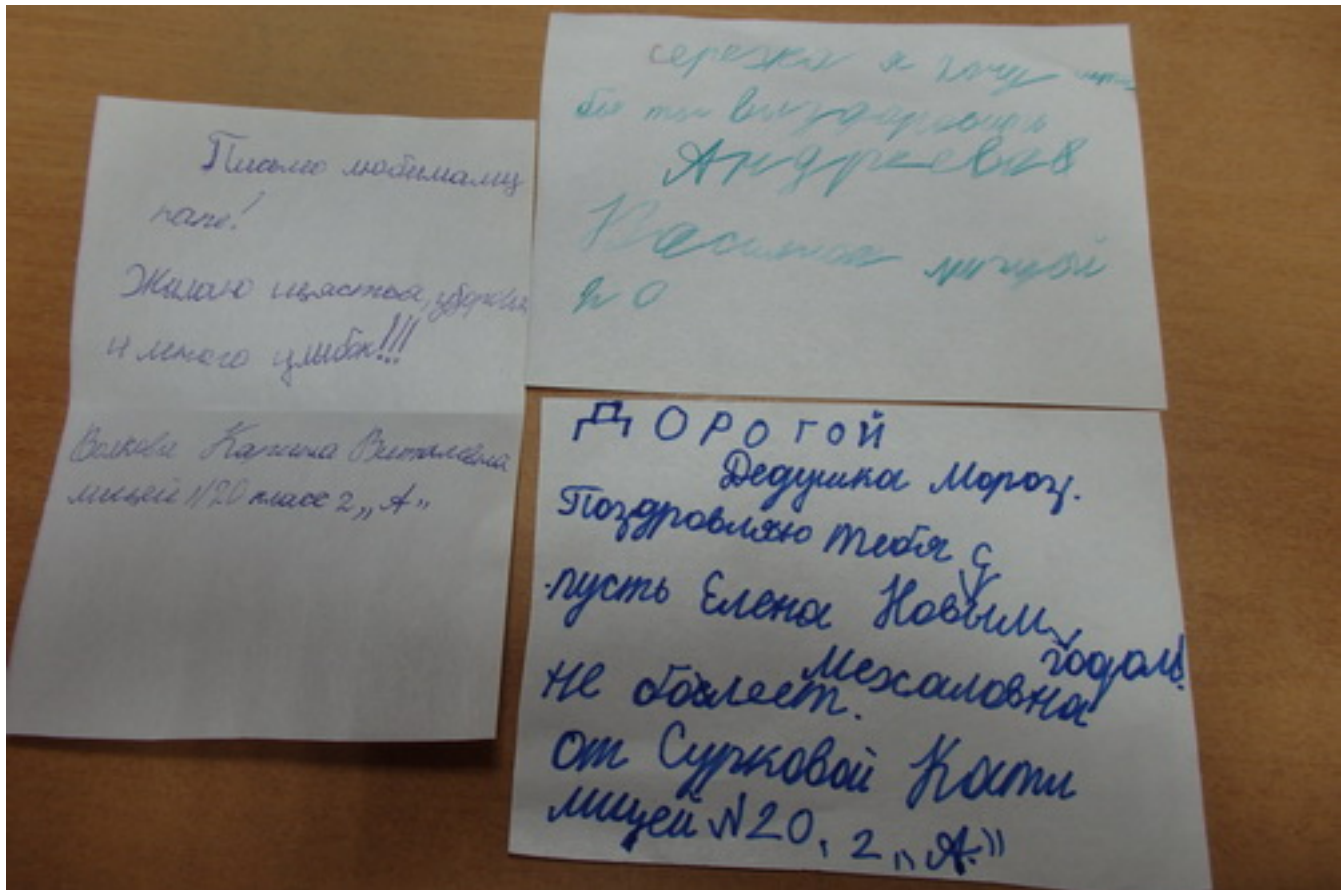 Письмо любимаму
папе!
Желаю щастья, здоровья
и много улыбок!!!
Волкова Карина Витальевна
лицей N20 класс 2 „А"
сережка я хочу
бы ты выздоровил
Андреева
Василиса лицей
20
ДОРОГОЙ
Дедушка Мороз.
Поздровляю тебя с
пусть Елена Новым годом.
Мехаловна
не обалеет.
от Сурковой Кати
лицей N20, 2 „А."